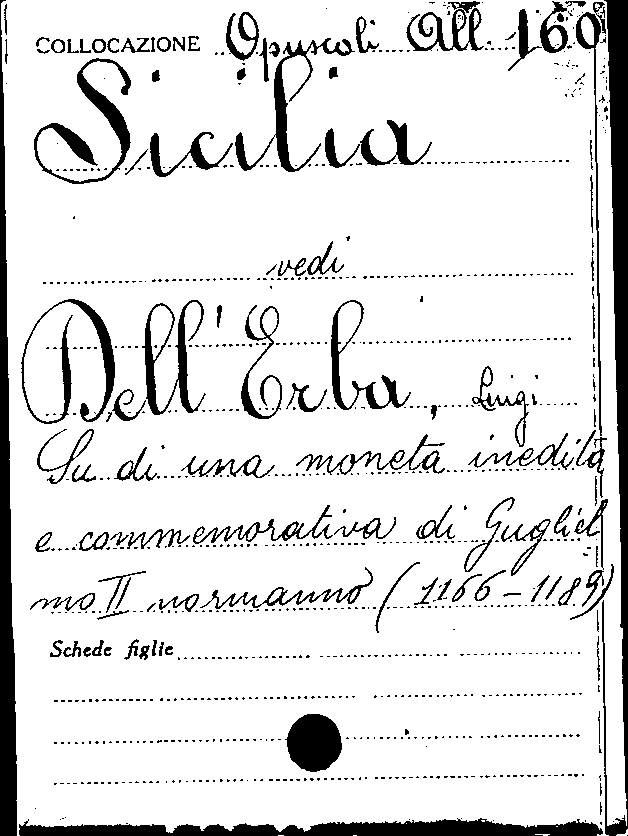 COLLOCAZIONE Opuscoli All. 160
Sicilia
vedi
Dell'Erba, Luigi
Su di una moneta inedita
e commemorativa di Gugliel
mo II normanno (1166-1189)
Schede figlie